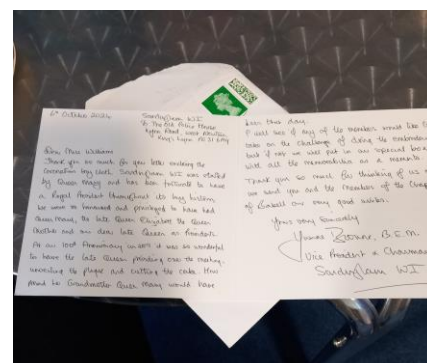 6th October 2024
Sandringham WI
Dear Miss William
Thank you so much for your letter enclosing the
Coronation tray cloth. Sandringham WI was started
by Queen Mary and has been fortunate to have
a Royal President throughout its long history.
We were so honoured and privileged to have had
Queen Mary, the late Queen Elizabeth the Queen
Mother and our dear late Queen as Presidents.
At our 100th Anniversary in it was so wonderful
to have the late Queen presiding over the meeting,
unveiling the plaque and cutting the cake. How
proud her Grandmother Queen Mary would have
been this day.
I will see if any of the members would like to
take on the challenge of doing the embroidery
but if not we will put in our special box
with all the memorabilia as a memento.
Thank you so much for thinking of us
we send you and the members of the
of our very good wishes.
Yours very sincerely
Yvonne Browne, B.E.M.
Vice President & Chairman
Sandringham WI